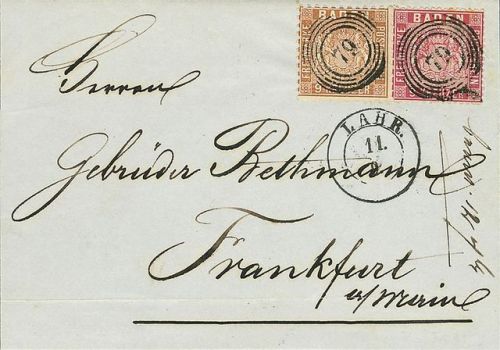 BADEN
FREIMARKE
79
BADEN
FREIMARKE
79
Herren
LAHR.
11.
Gebrüder Bethmann
Frankfurt
a/Main